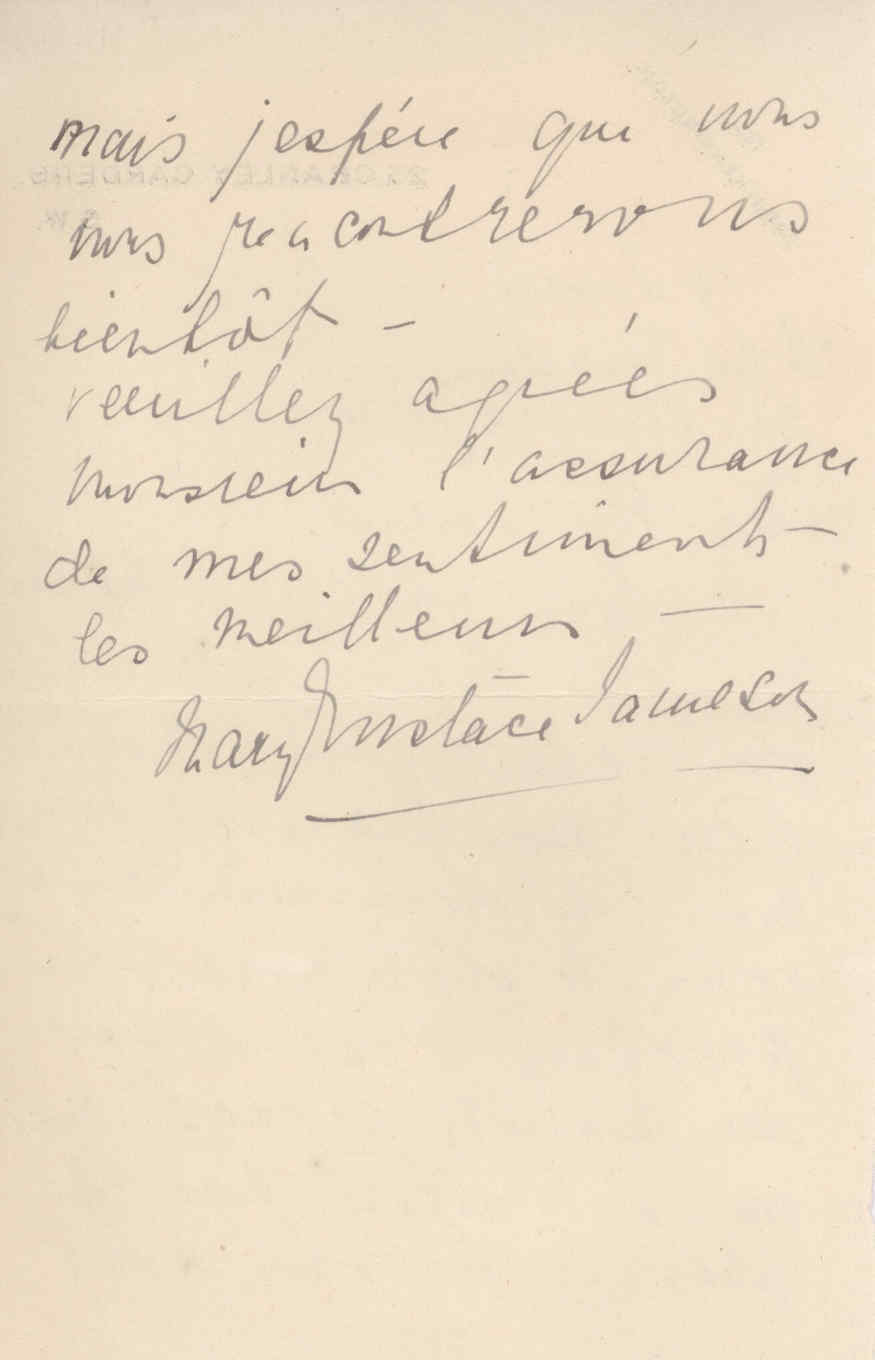 mais j'espére que nous
nous rencontrerons
bientôt -
veuillez agréés
monsieur l'assurance
de mes sentiments -
les meilleurs —
Mary Eustace Jameson